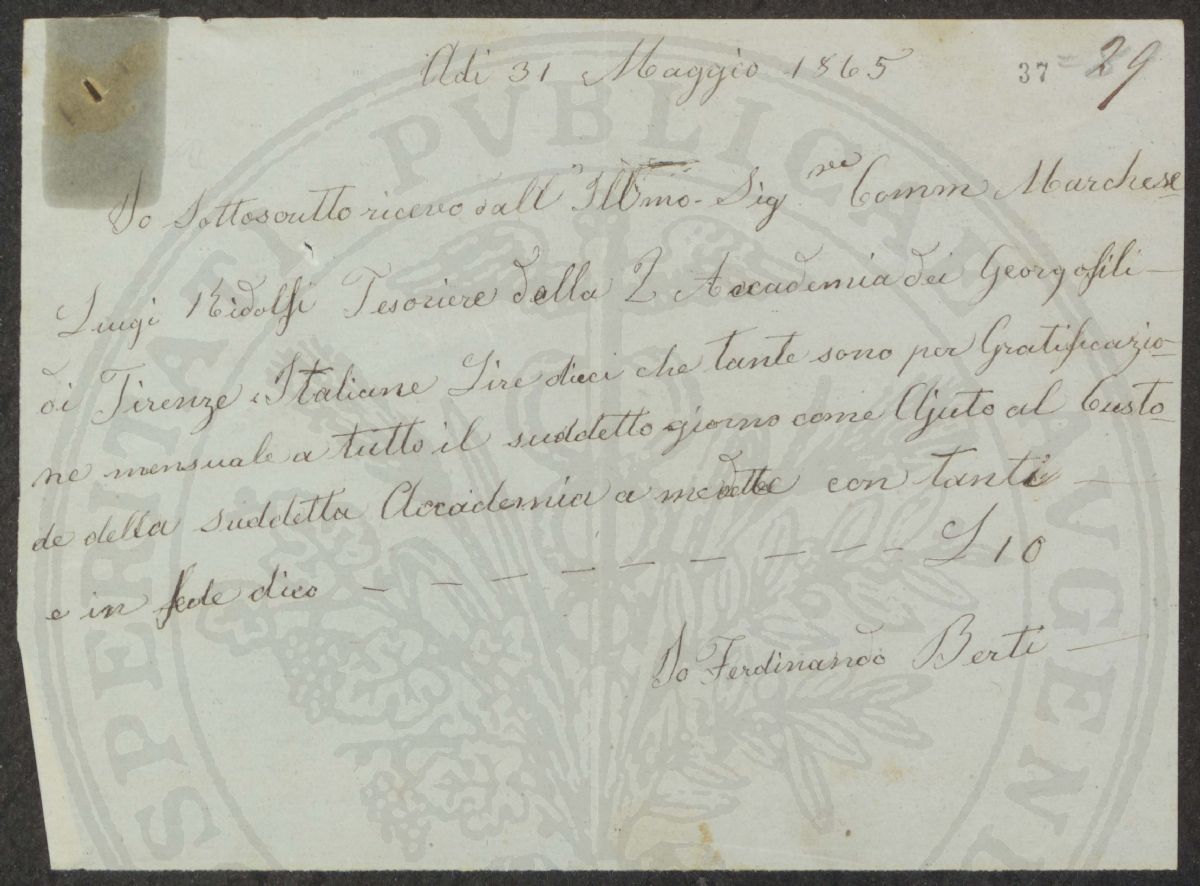 Adi 31 Maggio 1865
37 29
Io Sottoscritto ricevo dall' Illmo. Sigre Comm Marchese
Luigi Ridolfi Tesoriere della R Accademia dei Georgofili
di Firenze Italiane Lire dieci che tante sono per Gratificazio-
ne mensuale a tutto il suddetto giorno come Ajuto al Custo
de della suddetta Accademia a me dette con tanti
e in fede dico - - - - - - - - - L 10
Io Ferdinando Berti
PROSPERITATI PVBLICAE AVGENDAE